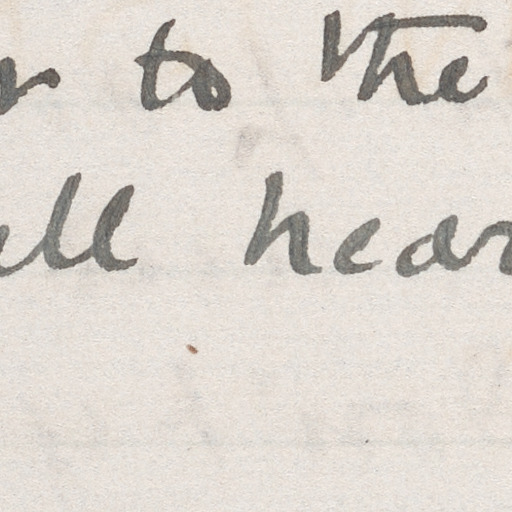 r to the
ell hear